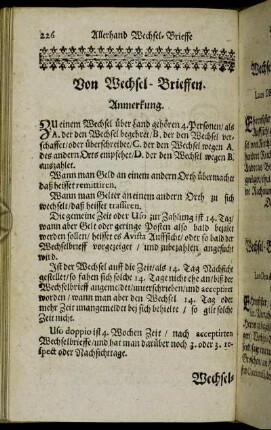 226 Allerhand Wechsel-Brieffe
Von Wechsel-Brieffen.
Anmerkung.
ZU einem Wechsel über hand gehören 4. Personen/ als
A. der den Wechsel begehret/ B. der den Wechsel ver-
schaffet/ oder überschreibet/ C. der den Wechsel wegen A.
des andern Orts empfehet/ D. der den Wechsel wegen B.
auszahlet.
Wann man Geld an einem andern Orth übermachet
daß heisset remittiren.
Wann man Gelter an einem andern Orth zu sich
wechselt/ daß heisset trassiren.
Die gemeine Zeit oder Uso zur Zahlung ist 14. Tag/
wann aber Gelt oder geringe Posten also bald bezalet
werden sollen/ heisset es Avista Auffsicht/ oder so bald der
Wechselbrieff vorgezeiget / und zubezahlen angesucht
wird.
Ist der Wechsel auff die Zeit/ als 14. Tag Nachsicht
gestellet/ so fahen sich solche 14. Tage nicht ehe an/ biß der
Wechselbrieff angemeldet/ unterschrieben/ und acceptiret
worden / wann man aber den Wechsel 14. Tag oder
mehr Zeit unangemeldet bey sich behielte / so gilt solche
Zeit nicht.
Uso doppio ist 4. Wochen Zeit / nach acceptirten
Wechselbrieff/ und hat man darüber noch 3. oder 3. re-
spect oder Nachsichttage.
Wechsel-
Wechsel